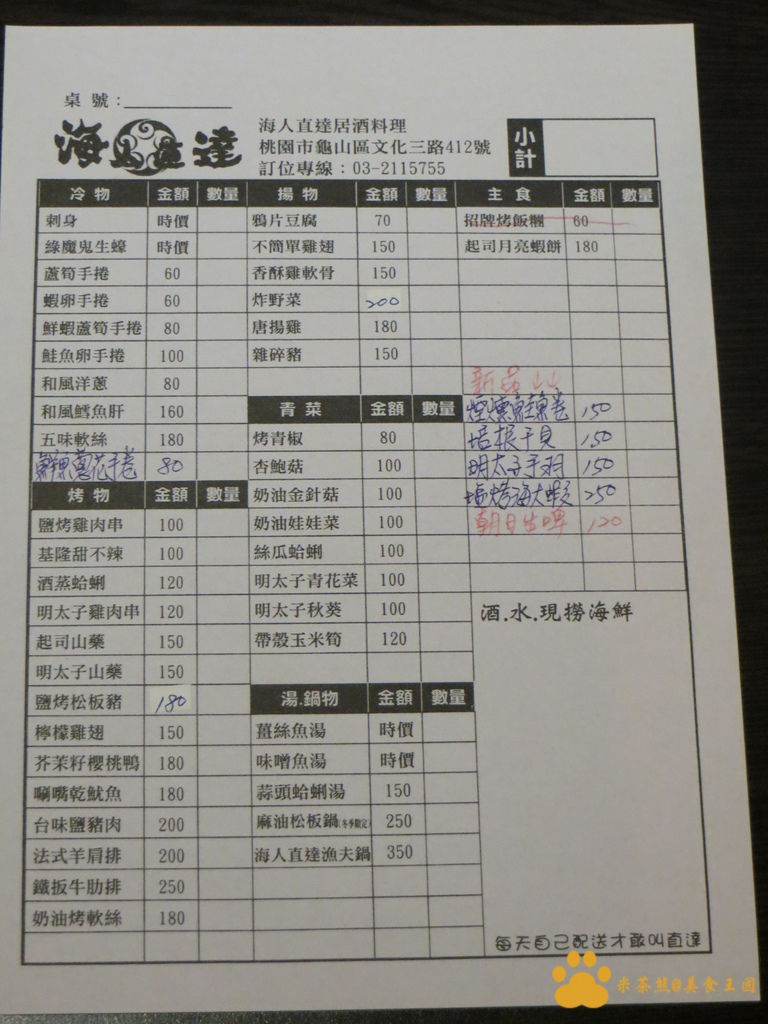 桌號：
海人直達
海人直達居酒料理
桃園市龜山區文化三路412號
訂位專線：03-2115755
小計
冷物 金額 數量
刺身 時價
綠魔鬼生蠔 時價
蘆筍手捲 60
蝦卵手捲 60
鮮蝦蘆筍手捲 80
鮭魚卵手捲 100
和風洋蔥 80
和風鱈魚肝 160
五味軟絲 180
蔥花手卷 80
烤物 金額 數量
鹽烤雞肉串 100
基隆甜不辣 100
酒蒸蛤蜊 120
明太子雞肉串 120
起司山藥 150
明太子山藥 150
鹽烤松板豬 180
檸檬雞翅 150
芥茉籽櫻桃鴨 180
唰嘴乾魷魚 180
台味鹽豬肉 200
法式羊肩排 200
鐵扳牛肋排 250
奶油烤軟絲 180
揚物 金額 數量
鴉片豆腐 70
不簡單雞翅 150
香酥雞軟骨 150
炸野菜 200
唐揚雞 180
雜碎豬 150
青菜 金額 數量
烤青椒 80
杏鮑菇 100
奶油金針菇 100
奶油娃娃菜 100
絲瓜蛤蜊 100
明太子青花菜 100
明太子秋葵 100
帶殼玉米筍 120
湯.鍋物 金額 數量
薑絲魚湯 時價
味噌魚湯 時價
蒜頭蛤蜊湯 150
麻油松板鍋(冬季限定) 250
海人直達漁夫鍋 350
主食 金額 數量
招牌烤飯糰 60
起司月亮蝦餅 180
新品
煙燻鮭魚卷 150
培根干貝 150
明太子手羽 150
塩烤海大蝦 250
朝日生啤 120
酒.水.現撈海鮮
每天自己配送才敢叫直達
米茶熊@美食王國